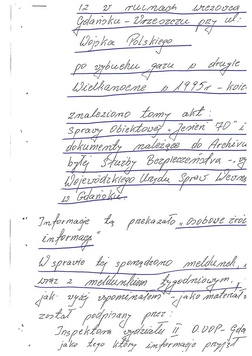 12 w ruinach wieżowca
Gdańsku-Wrzeszczu przy ul:
Wojska Polskiego
po wybuchu gazu w drugie
Wielkanocne w 1995r - kwie
znaleziono tomy akt:
Sprawy Obiektowej "Jesień 70" i
dokumenty należące do Archiwu
byłej Służby Bezpieczeństwa
Wojewódzkiego Urzędu Spraw Wewnę
w Gdańsku.
Informację tą przekazało "osobowe źród
informacji"
W sprawie tej sporządzono meldunek,
wraz z meldunkiem tygodniowym,
jak wyżej wspomniałem - jako materiał
został podpisany przez:
Inspektora wydziału II D.UOP-Gda
jako tego który informację przyjął